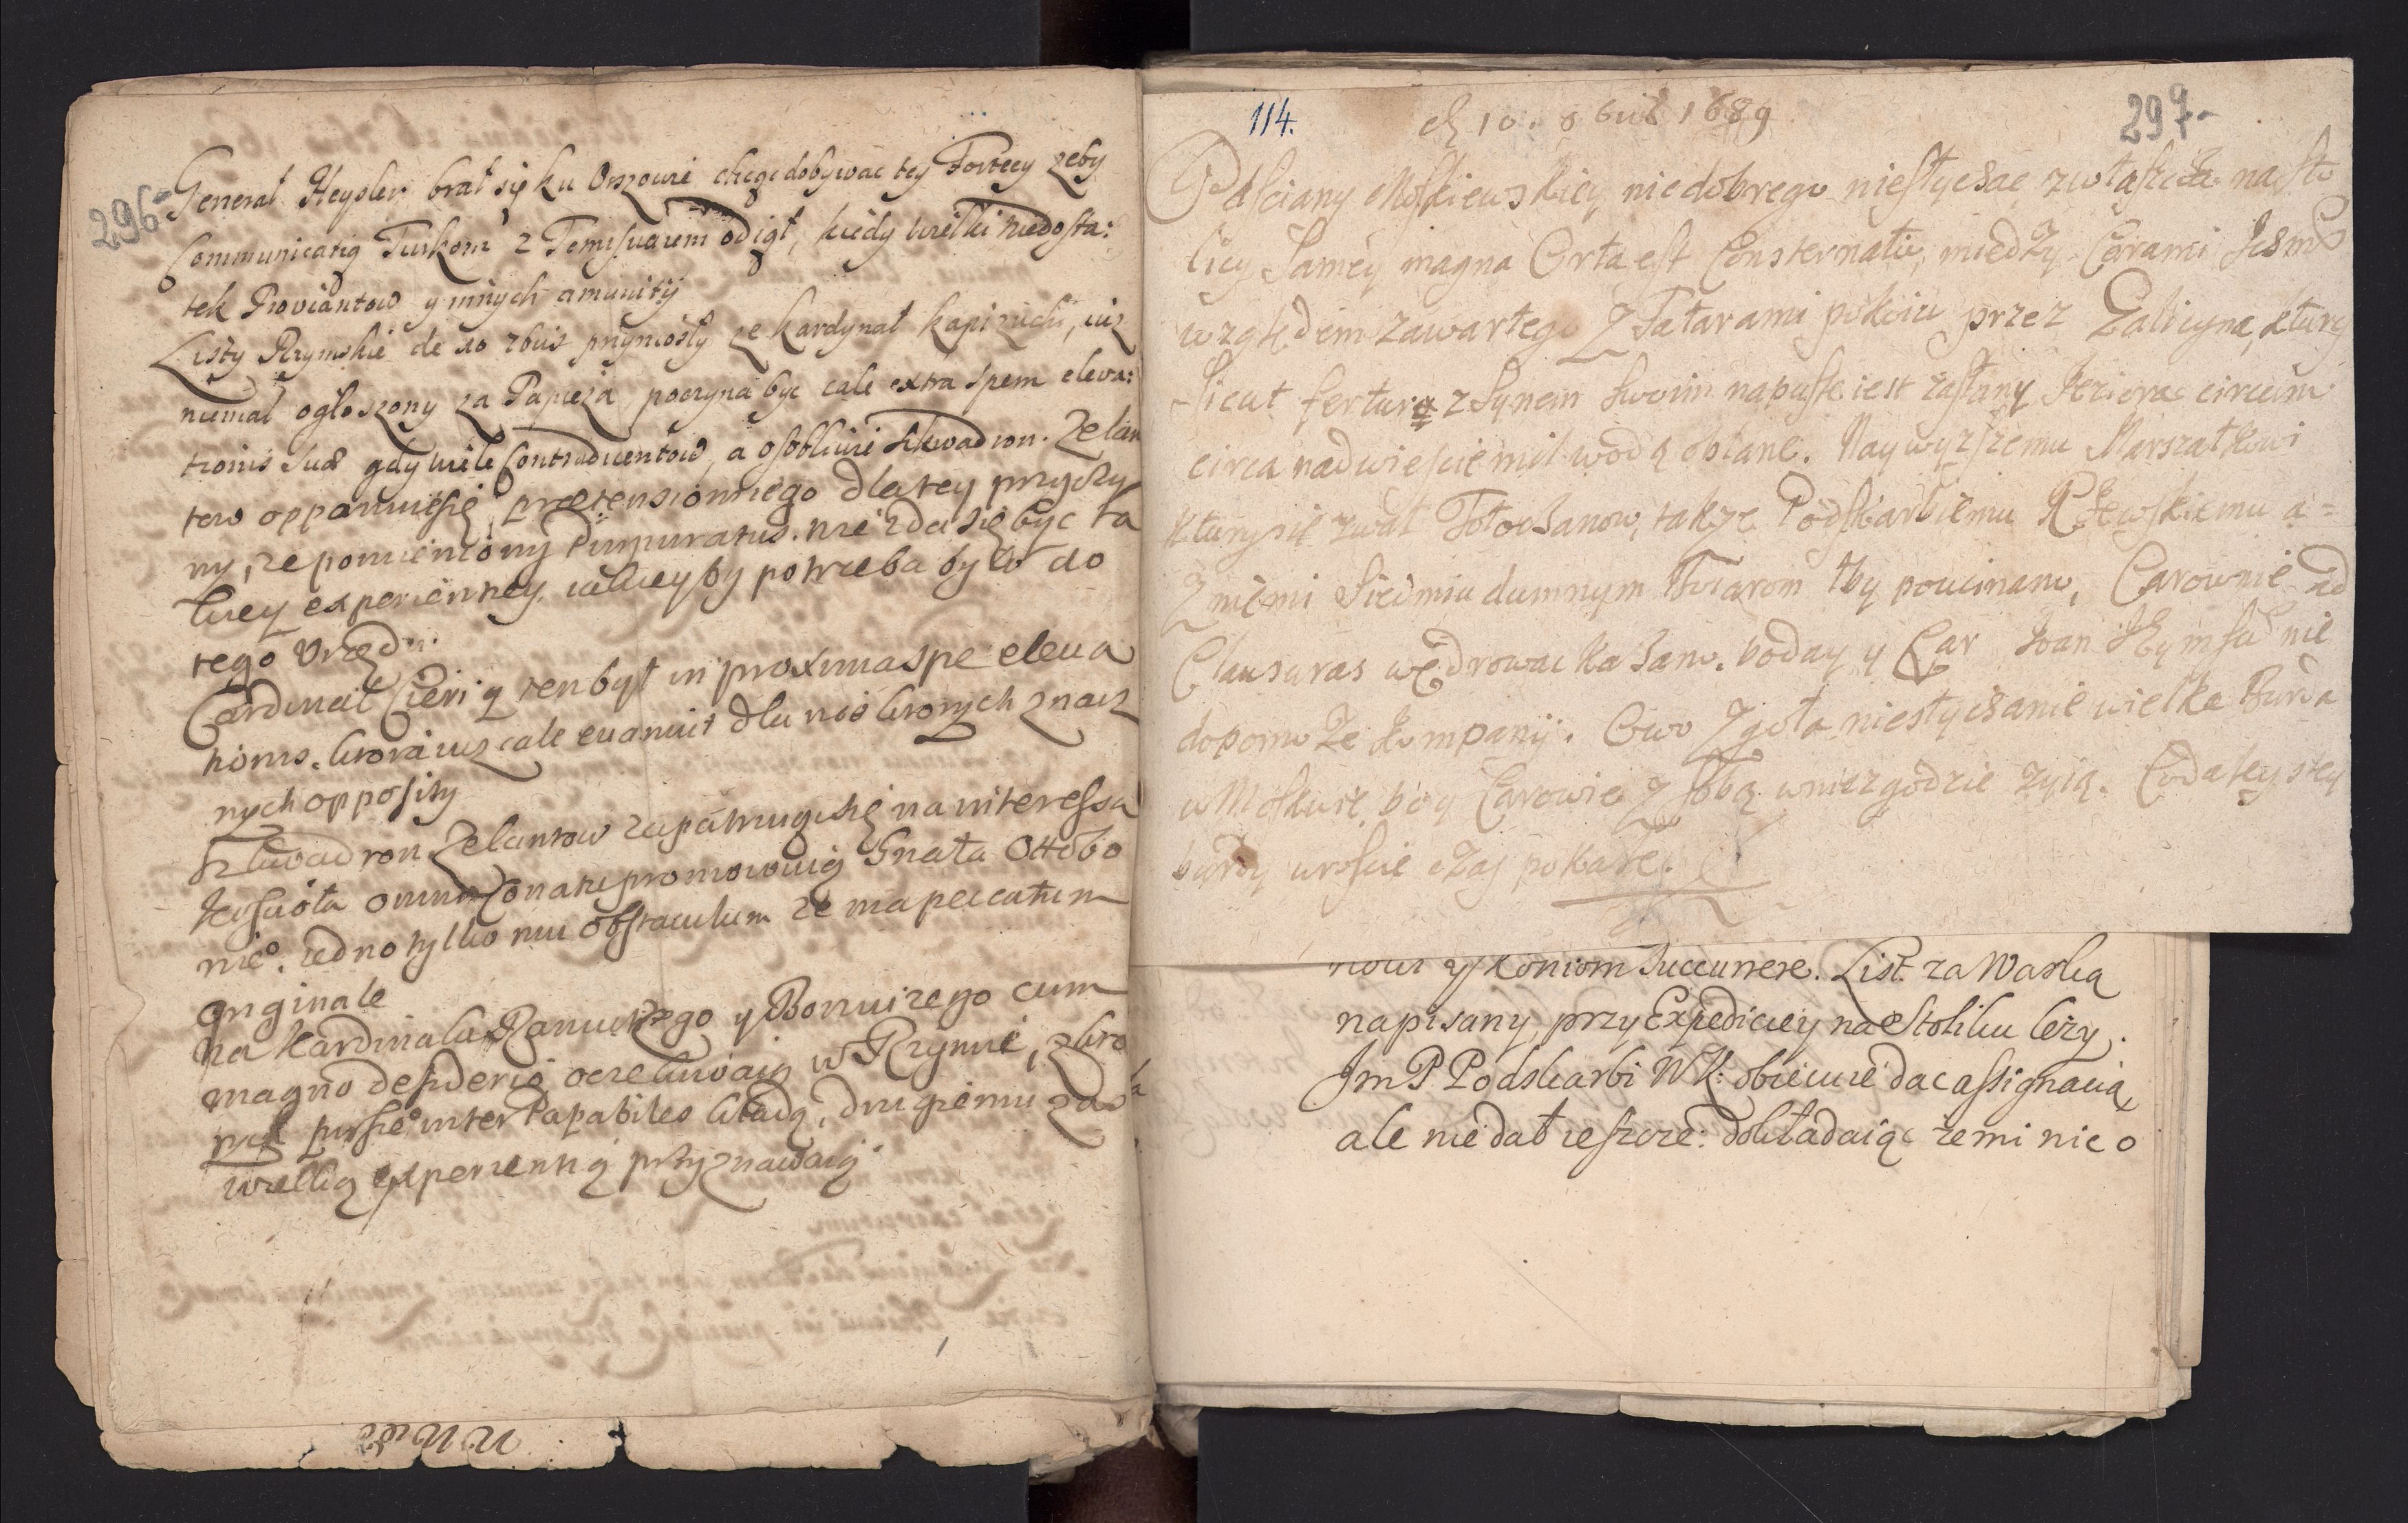 296.
General Heysler brał się ku Orszowie chcąc dobywac tey Fortecy zeby
Communicatią Turkom z Temisuarem odiął, kiedy wielki niedosta:
tek Proviantow y innych amunitij
Listy Rzymskie de 10 7bris przyniosły ze kardynał kapizuchi, iuz
niemal ogłoszony za Papieza poczyna byc cale extra spem eleva:
tionis suae gdy wiele Contradicentow, a osobliwie szkwadron Zelan
tow opponuie się prætensionniego dla tey przyczy
ny, ze pomieniony Purpuratus nie zda się byc ta
kiey experientiey iakieyby potrzeba było do
tego Vrzędu.
Cardinal Cieri y ten był in proxima spe eleva
tionis, ktora iuz cale evanuit dla niektorych znacz
nych opposity
Szkwadron Zelantow zapatruiąc się na interessa
Koscioła omni Conatu promowuią Gnata Ottobo
nie°. iedno tylko mu obstaculum ze ma peccatum
originale
Na Kardinala Ranuczego y Bonuizego cum
magno desiderio oczekiwaią w Rzymie, z kto
rych pirsze° inter Papabiles kładą, drugiemu zas
wielką experientią przyznawaią.
114.
d 10. 8bris 1689
297.
Od sciany Moskiewskiey nic dobrego niesłychac zwłaszcza na sto
licy samey magna Orta est Consternatio, miedzy Carami Ichm
względem zawartego z Tatarami pokoiu przez Galicyna, ktury
sicut fertur z Synem swoim na pas iest zasłany Iezioro circum
circa nadwiescie mil wodą oblane. Naywyzszemu Marszałkowi
ktury sie zwał Tołoczanow, takze Podskarbiemu Rzewskiemu a=
z niemi siedmiu dumnym Boiarom łby poucinano, Carownie ad
Clausuras wędrowac kazano. boday y Car Iwan Ihymsu nie
dopomoze kompanij. Owo zgoła niesłychanie wielka Burda
w Moskwie, bo y Carowie z sobą w niezgodzie zyią. Co daley z tey
burdy urosnie czas pokaze.
nowi y koniom Succurrere. List za Warką
napisany, przy Expediciey na Stoliku lezy.
Jm P Podskarbi WK: obiecuie dac assignacią,
ale nie dał ieszcze: dokładaiąc ze mi nic o